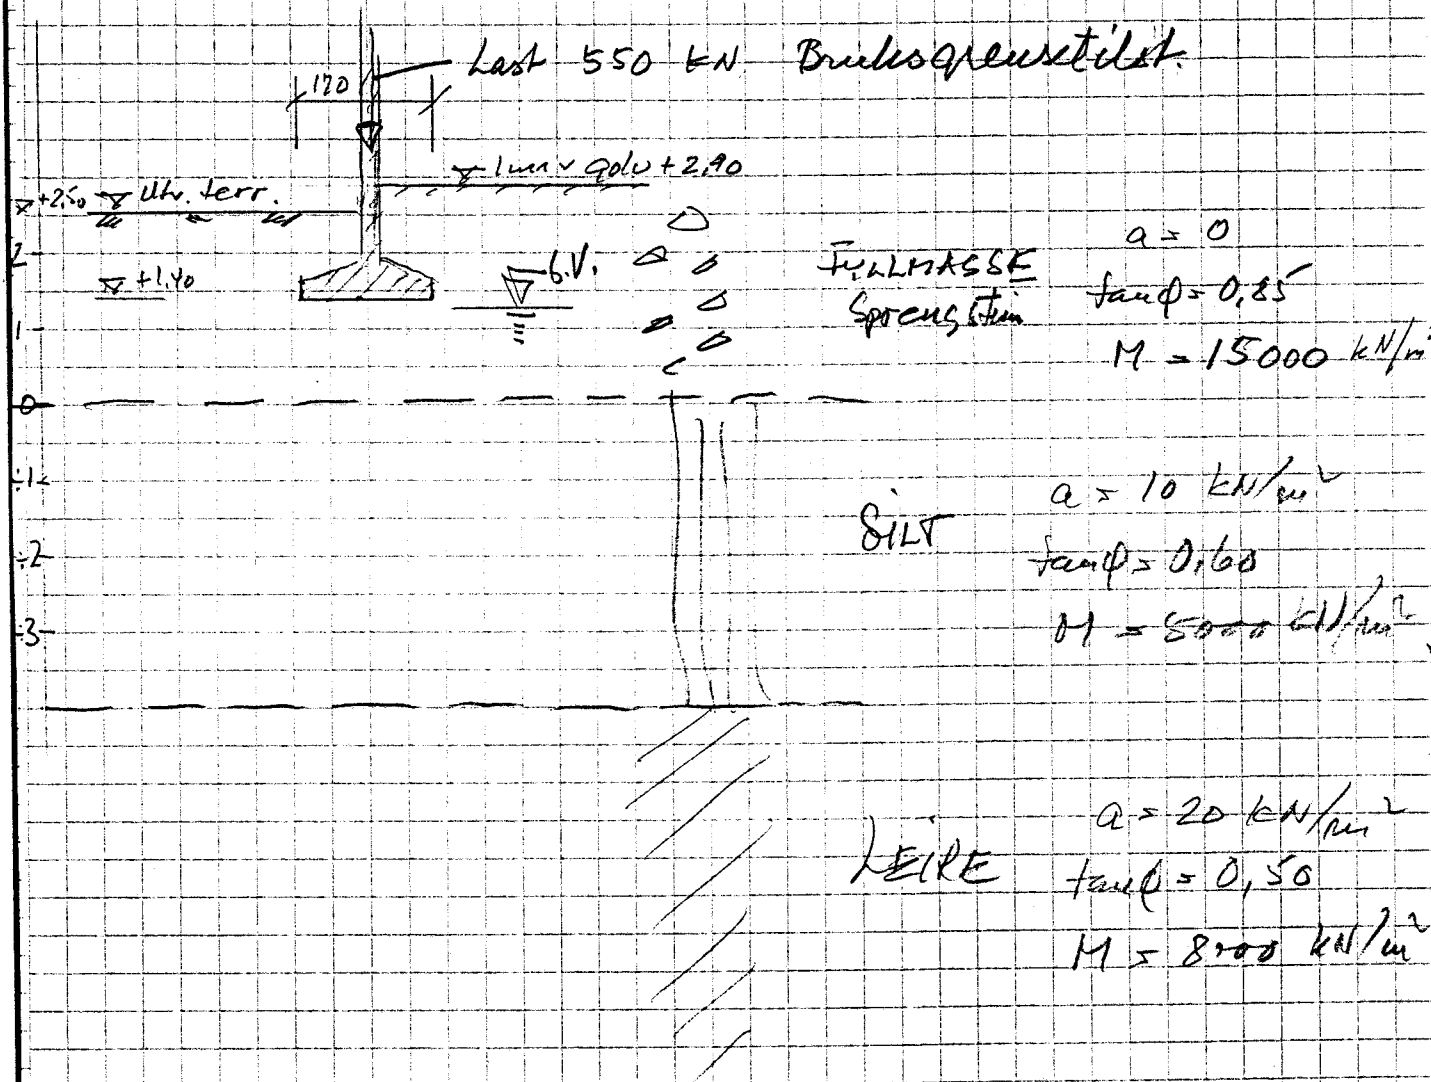 Last 550 kN Bruksgrensetilst.
120
+2,50 Utv. terr.
Innv golv +2,90
2
+1,40
G.V.
FYLLMASSE
Sprengstein
a = 0
tanφ = 0,85
M = 15000 kN/m
1
0
÷1
÷2
÷3
SILT
a = 10 kN/m²
tanφ = 0,60
M = 5000 kN/m²
LEIRE
a = 20 kN/m²
tanφ = 0,50
M = 8000 kN/m²